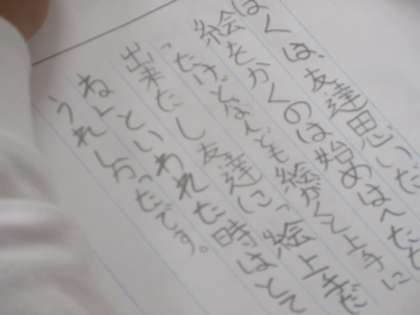 ぼくは、友達思いだ
絵をかくのは始めはへただ
ったけどなんども絵かくと上手に
出来だし友達に「絵上手だ
ね」といわれた時はとて
うれしかったです。